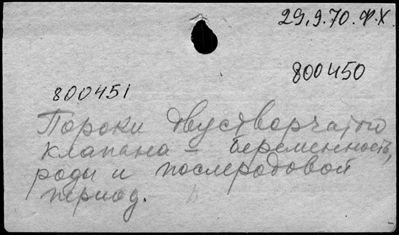 29.9.70. Ф.Х.
800450
800451
Пороки двустворчатого
клапана – беременность,
роды и послеродовой
период.